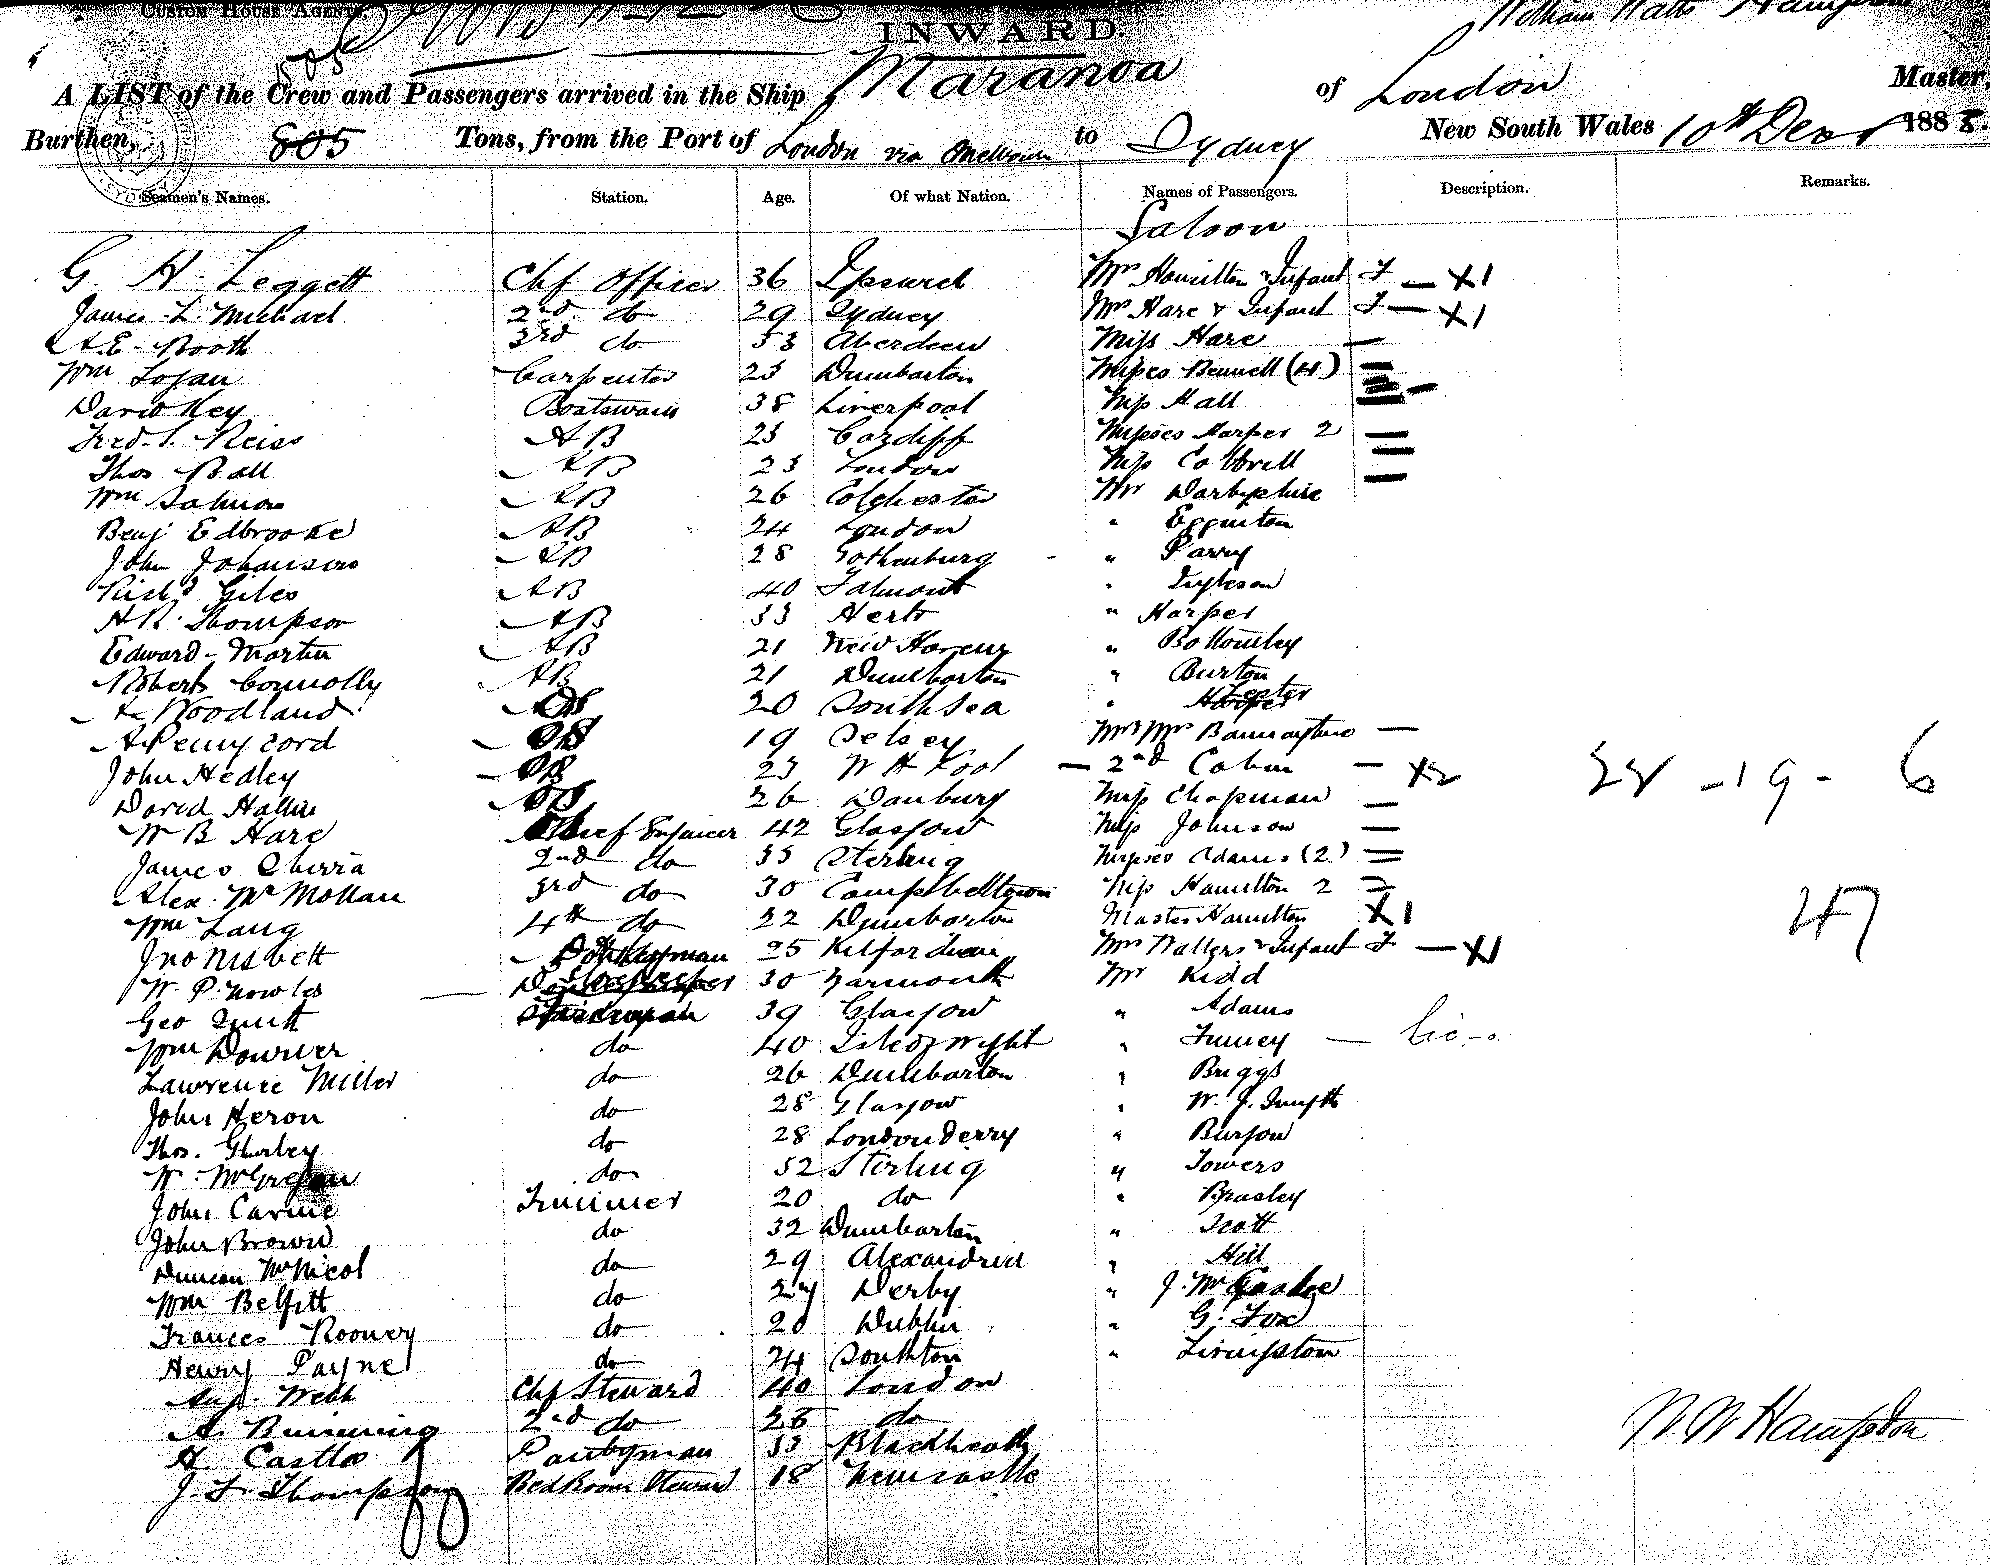 Custom House Agent.
INWARD.
William Watts Hampson
A LIST of the Crew and Passengers arrived in the Ship Maranoa of London Master,
Burthen, 805 Tons, from the Port of London via Melbourne to Sydney New South Wales 10th Decr 1888.
Seamen's Names. Station. Age. Of what Nation. Names of Passengers. Description. Remarks.
Saloon
G. H. Leggett Chf Officer 36 Mrs Hamilton & Infant F — X1
James L. Michael 2nd do 29 Sydney Mrs Hare & Infant F — X1
A.E. Booth 3rd do 33 Aberdeen Miss Hare —
Wm Logan Carpenter 23 Dumbarton Misses Bennell (4)
David Key Boatswain 38 Liverpool Miss Hall
Fred. S. Reiss AB 23 Cardiff Misses Harper 2
Thos Ball AB 23 London Miss Cottrell
Wm Salmon AB 26 Colchester Mr Darbyshire
Benj Edbrooke AB 24 London " Egginton
John Johanson AB 28 Gothenburg " Parry
Richd Giles AB 40 Falmouth "
H R. Thompson AB 33 Herts " Harper
Edward Martin AB 21 " Bottomley
Robert Connolly AB 21 Dumbarton " Burton
A Woodland 20 Southsea " Lester
A Pennycord 19 Selsey Mr & Mrs —
John Hedley 23 — 2nd Cabin — X2 28 - 19 - 6
David 26 Danbury Miss Chapman —
W B Hare Chief Engineer 42 Glasgow Miss Johnson —
James 2nd do 33 Sterling Misses Adams (2) =
Alex. 3rd do 30 Campbeltown Miss Hamilton 2 =
Wm Lang 4th do 22 Dumbarton Master Hamilton X1 47
Jno Nisbett Donkeyman 25 Mrs Walters & Infant F — X1
W. P. Nowles 30 Yarmouth Mr Kidd
Geo Smith 39 Glasgow " Adams
Wm do 40 Isle of Wight " —
Lawrence Miller do 26 Dumbarton " Briggs
John Heron do 28 Glasgow " W. J. Smyth
Thos. do 28 Londonderry "
W. McGregor do 52 Sterling " Towers
John Carvie Trimmer 20 do "
John Brown do 32 Dumbarton " Scott
Duncan McNicol do 29 Alexandria " Hill
Wm Belfitt do 27 Derby "
Frances Rooney do 20 Dublin " G. Fox
Henry Payne do 24 Southton " Livingston
Webb Chf Steward 40 London
A. 2nd do 28 do W W Hampson
A. Castle Pantryman 33 Blackheath
J. F. Thompson Bed Room Steward 18 Newcastle